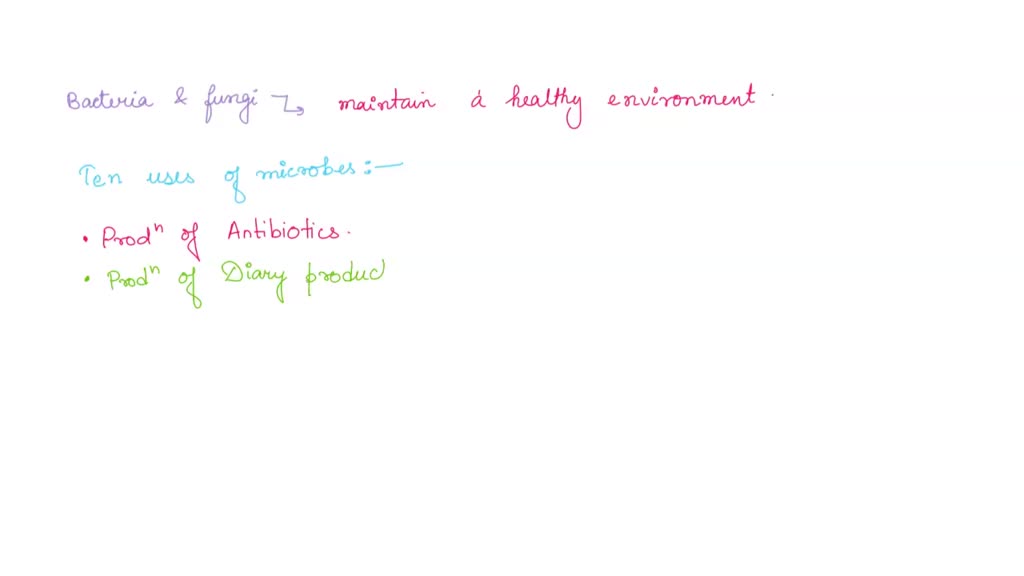 Bacteria & fungi ↳ maintain a healthy environment.
Ten uses of microbes:—
• Prodⁿ of Antibiotics.
• Prodⁿ of Diary produc